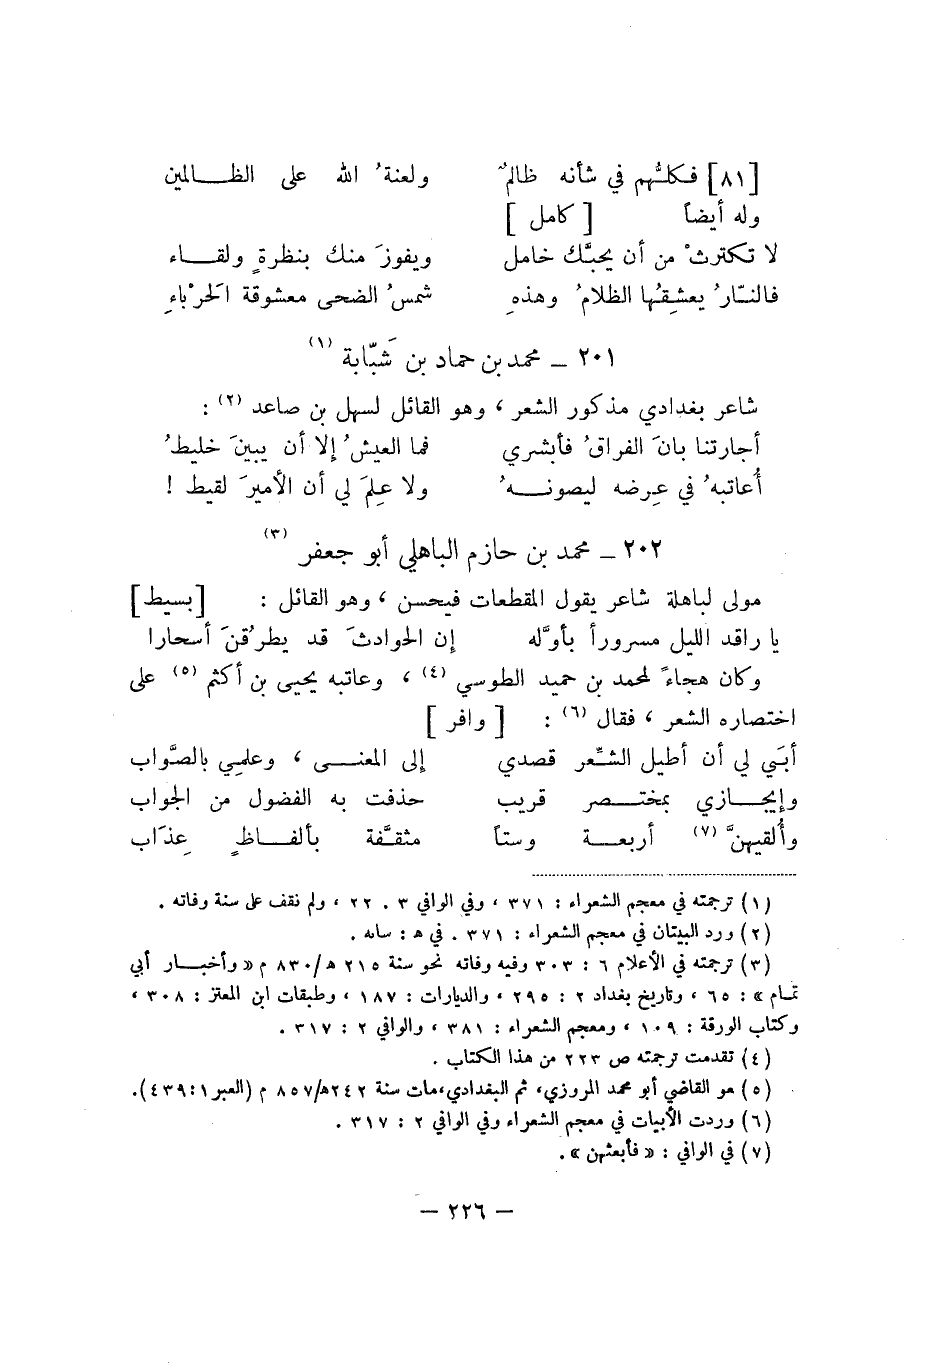 [٨١] فكلُّهم في شأنه ظالمٌ ولعنةُ الله على الظالمين
وله أيضاً [ كامل ]
لا تكترثْ من أن يحبَّك خامل ويفوزَ منك بنظرةٍ ولقاء
فالنّارُ يعشقُها الظلامُ وهذهِ شمسُ الضحى معشوقة الحرْباءِ
٢٠١ – محمد بن حماد بن شَبّابة (١)
شاعر بغدادي مذكور الشعر ، وهو القائل لسهل بن صاعد (٢) :
أجارتنا بانَ الفراقُ فأبشري فما العيشُ إلا أن يبينَ خليطُ
أُعاتبهُ في عِرضه ليصونهُ ولا عِلمَ لي أن الأميرَ لقيط !
٢٠٢ – محمد بن حازم الباهلي أبو جعفر (٣)
مولى لباهلة شاعر يقول المقطعات فيحسن ، وهو القائل : [بسيط]
يا راقد الليل مسروراً بأوَّله إن الحوادثَ قد يطرُقنَ أسحارا
وكان هجاءً لمحمد بن حميد الطوسي (٤) ، وعاتبه يحيى بن أكثم (٥) على
اختصاره الشعر ، فقال (٦) : [ وافر ]
أبَي لي أن أطيل الشِّعر قصدي إلى المعنى ، وعلمي بالصَّواب
وإيجازي بمختصر قريب حذفت به الفضول من الجواب
وأُلقيهنَّ (٧) أربعة وستاً مثقَّفة بألفاظٍ عِذاب
(١) ترجمته في معجم الشعراء : ٣٧١ ، وفي الوافي ٣ . ٢٢ ، ولم نقف على سنة وفاته .
(٢) ورد البيتان في معجم الشعراء : ٣٧١ . في ه : سانه .
(٣) ترجمته في الأعلام ٦ : ٣٠٣ وفيه وفاته نحو سنة ٢١٥ ه/٨٣٠ م « وأخبار أبي
تمام » : ٦٥ ، وتاريخ بغداد ٢ : ٢٩٥ ، والديارات : ١٨٧ ، وطبقات ابن المعتز : ٣٠٨ ،
وكتاب الورقة : ١٠٩ ، ومعجم الشعراء : ٣٨١ ، والوافي ٢ : ٣١٧ .
(٤) تقدمت ترجمته ص ٢٢٣ من هذا الكتاب .
(٥) هو القاضي أبو محمد المروزي، ثم البغدادي،مات سنة ٢٤٢ه/٨٥٧ م (العبر١:٤٣٩).
(٦) وردت الأبيات في معجم الشعراء وفي الوافي ٢ : ٣١٧ .
(٧) في الوافي : « فأبعثهن » .
– ٢٢٦ –